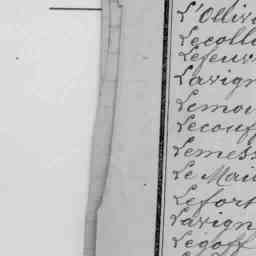 L'Olliv
Lecoll
Lefeuv
Lavign
Lemou
Lecouf
Lemess
Le Mai
Lefort
Lavign
Legoff